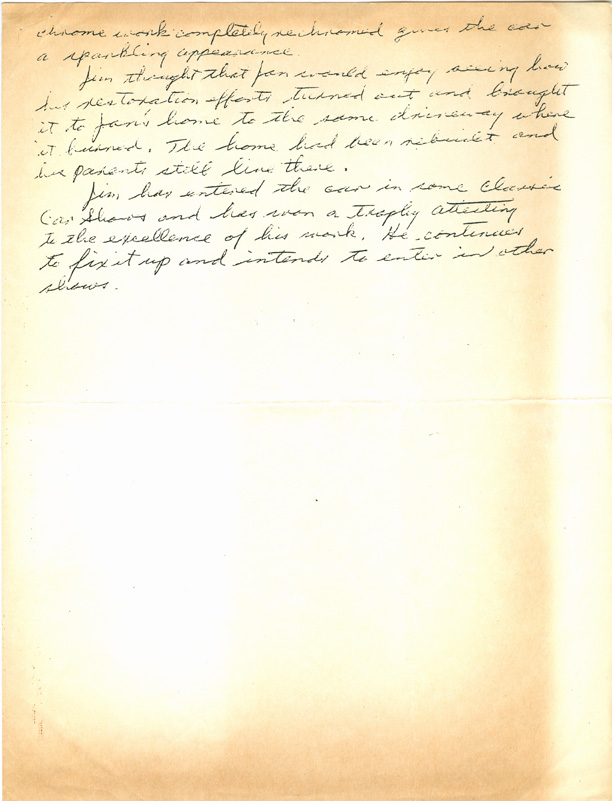 chrome work completely rechromed gives the car
a sparkling appearance.
Jim thought that Jan would enjoy seeing how
his restoration efforts turned out and brought
it to Jan's home to the same driveway where
it burned. The home had been rebuilt and
her parents still live there.
Jim has entered the car in some Classic
Car Shows and has won a trophy attesting
to the excellence of his work. He continues
to fix it up and intends to enter in other
shows.